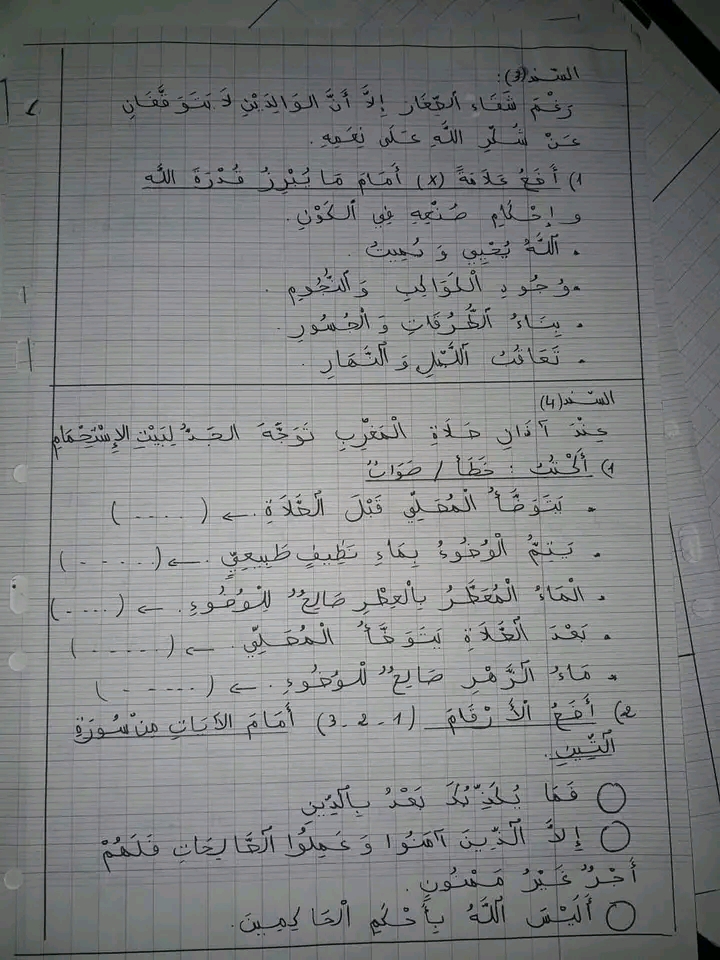 السند(3):
رَغْمَ شَقَاءِ الصِّغَارِ إِلاَّ أَنَّ الوَالِدَيْنِ لاَ يَتَوَقَّفَانِ
عَنْ شُكْرِ اللَّهِ عَلَى نِعَمِهِ.
1) أَضَعُ عَلاَمَةً (x) أَمَامَ مَا يُبْرِزُ قُدْرَةَ اللَّه
وإِحْكَامِ صُنْعِهِ فِي الكَوْنِ.
• اللَّهُ يُحْيِي وَ يُمِيتُ.
• وُجُودِ الْكَوَاكِبِ وَالنُّجُومِ.
• بِنَاءُ الطُّرُقَاتِ وَ الْجُسُورِ.
• تَعَاقُبُ اللَّيْلِ وَ النَّهَارِ.
السند(4)
عِنْدَ آذَانِ صَلاَةِ الْمَغْرِبِ تَوَجَّهَ الجَدُّ لِبَيْتِ الإِسْتِحْمَامِ
1) أَكْتُبُ : خَطَأ / صَوَابٌ
• يَتَوَضَّأُ الْمُصَلِّي قَبْلَ الصَّلاَةِ. ← (.....)
• يَتِمُّ الْوُضُوءُ بِمَاءٍ نَظِيفٍ طَبِيعِيٍّ. ← (......)
• الْمَاءُ الْمُعَطَّرُ بِالْعِطْرِ صَالِحٌ لِلْوُضُوءِ. ← (.....)
• بَعْدَ الصَّلاَةِ يَتَوَضَّأُ الْمُصَلِّي. ← (......)
• مَاءُ الزَّهْرِ صَالِحٌ لِلْوُضُوءِ. ← (......)
2) أَضَعُ الأَرْقَامَ (1-2-3) أَمَامَ الآيَاتِ مِنْ سُورَةِ
التِّينِ.
فَمَا يُكَذِّبُكَ بَعْدُ بِالدِّينِ
إِلاَّ الَّذِينَ آمَنُوا وَ عَمِلُوا الصَّالِحَاتِ فَلَهُمْ
أَجْرٌ غَيْرُ مَمْنُونٍ.
أَلَيْسَ اللَّهُ بِأَحْكَمِ الْحَاكِمِينَ.